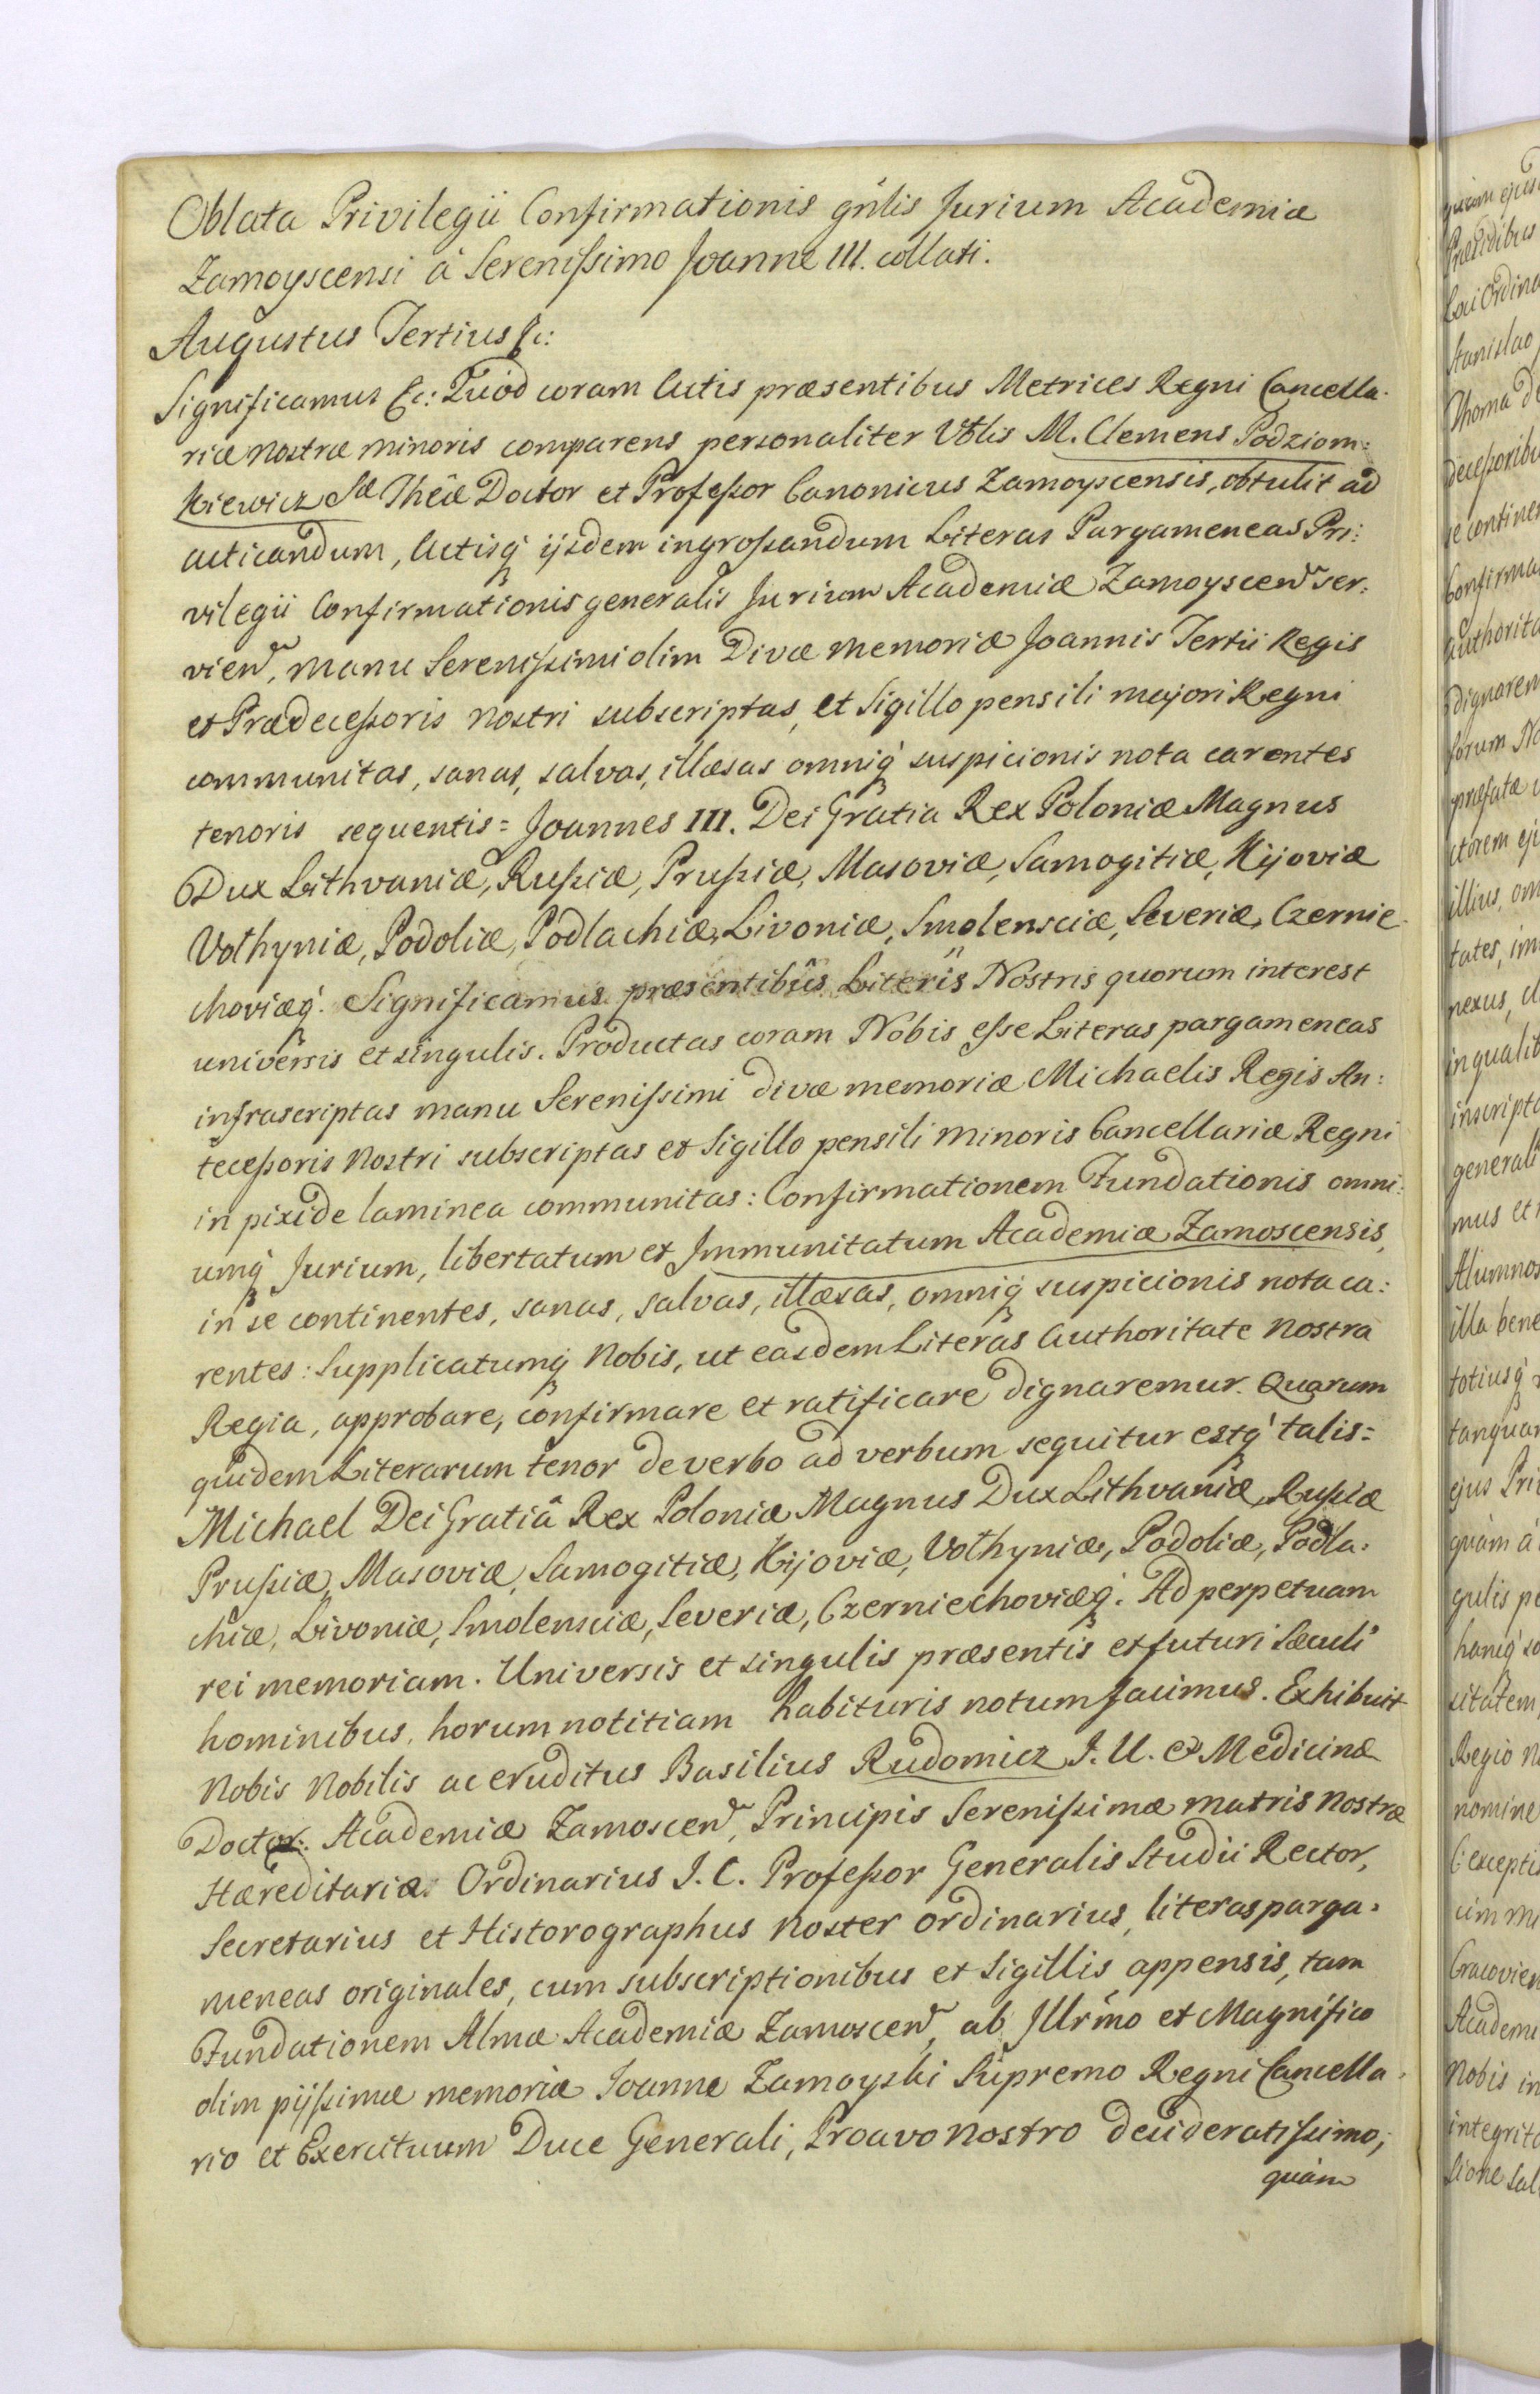 Oblata Privilegii Confirmationis gnlis Jurium Academiæ
Zamoyscensi â Serenissimo Joanne III. collati.
Augustus Tertius &c:
Significamus &c: Quod coram Actis præsentibus Metrices Regni Cancella-
riæ nostræ minoris comparens personaliter Vblis M. Clemens Podziom:
kiewicz Sæ Thêæ Doctor et Professor Canonicus Zamoyscensis, obtulit ad
acticandum, Actisq́ ijsdem ingrossandum Literas Pargameneas Pri:
vilegii Confirmationis generalis Jurium Academiæ Zamoyscen̄ ser:
vien̄, manu Serenissimi olim Divæ memoriæ Joannis Tertii Regis
et Prædecessoris nostri subscriptas, et Sigillo pensili majori Regni
communitas, sanas, salvas, illæsas omniq́ suspicionis nota carentes
tenoris sequentis = Joannes III. Dei Gratia Rex Poloniæ Magnus
Dux Lithvaniæ, Russiæ, Prussiæ, Masoviæ, Samogitiæ, Kijoviæ
Volhyniæ, Podoliæ, Podlachiæ, Livoniæ, Smolensciæ, Severiæ, Czernie-
choviæq́. Significamus præsentibus Literis Nostris quorum interest
universis et singulis. Productas coram Nobis esse Literas pargameneas
infrascriptas manu Serenissimi divæ memoriæ Michaelis Regis An:
tecessoris nostri subscriptas et Sigillo pensili minoris Cancellariæ Regni
in pixide laminea communitas: Confirmationem Fundationis omni:
umq́ Jurium, libertatum et Immunitatum Academiæ Zamoscensis,
in se continentes, sanas, salvas, illæsas, omniq́ suspicionis nota ca:
rentes: Supplicatumq́ Nobis, ut easdem Literas Authoritate nostra
Regia, approbare, confirmare et ratificare dignaremur. Quarum
quidem Literarum tenor de verbo ad verbum sequitur estq́ talis =
Michael Dei Gratiâ Rex Poloniæ Magnus Dux Lithvaniæ, Russiæ
Prussiæ, Masoviæ, Samogitiæ, Kijoviæ, Volhyniæ, Podoliæ, Podla:
chiæ, Livoniæ, Smolensciæ, Severiæ, Czerniechoviæq́. Ad perpetuam
rei memoriam. Universis et singulis præsentis et futuri Sæculi
hominibus, horum notitiam habituris notum facimus. Exhibuit
Nobis Nobilis ac eruditus Basilius Rudomicz J. U. et Medicinæ
Doctor: Academiæ Zamoscen̄, Principis Serenissimæ matris nostræ
Hæreditariæ Ordinarius J. C. Professor Generalis Studii Rector,
Secretarius et Historographus noster ordinarius, literas parga:
meneas originales, cum subscriptionibus et Sigillis appensis, tam
Fundationem Almæ Academiæ Zamoscen̄, ab Illrmo et Magnifico
olim pijssimæ memoriæ Joanne Zamoyski Supremo Regni Cancella:
rio et Exercituum Duce Generali, Proavo nostro desideratissimo,
quàm